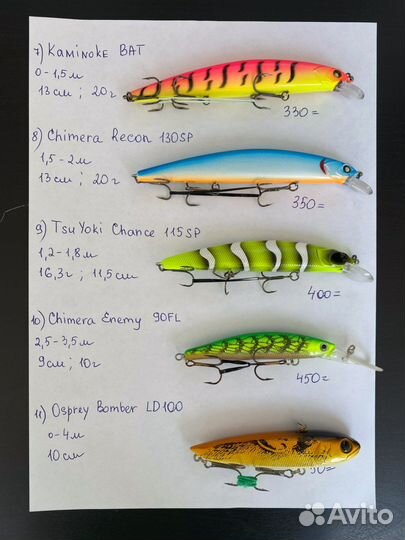 7) Kaminoke BAT
0-1,5м
13см ; 20г
330=
8) Chimera Recon 130SP
1,5-2м
13см ; 20г
350=
9) TsuYoki Chance 115SP
1,2-1,8м
16,3г ; 11,5см
400=
10) Chimera Enemy 90FL
2,5-3,5м
9см ; 10г
450=
11) Osprey Bomber LD100
0-4м
10см
Avito